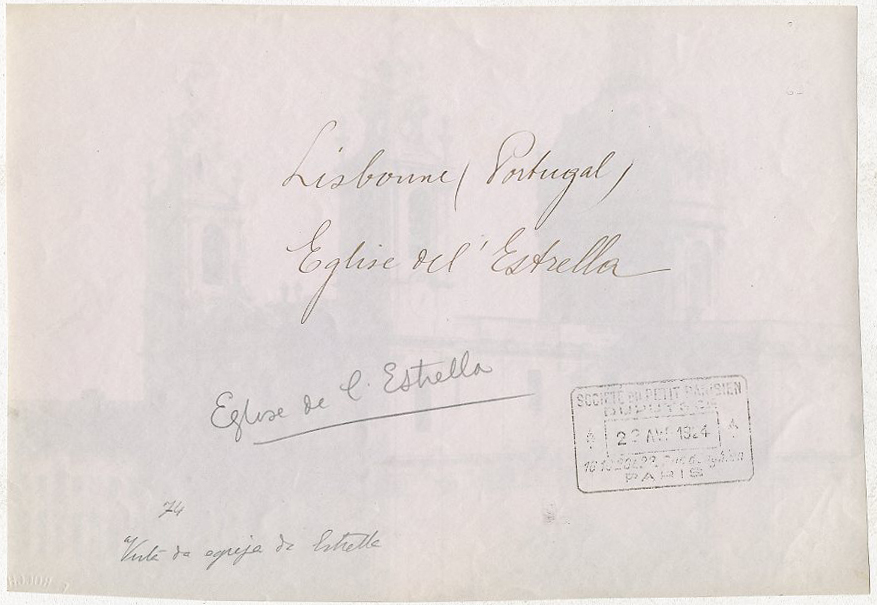 Lisbonne (Portugal)
Eglise del'Estrella
Eglise de l'Estrella
SOCIÉTÉ DU PETIT PARISIEN
DUPUY & Cie
1924
PARIS
74
Vista da egreja da Estrella